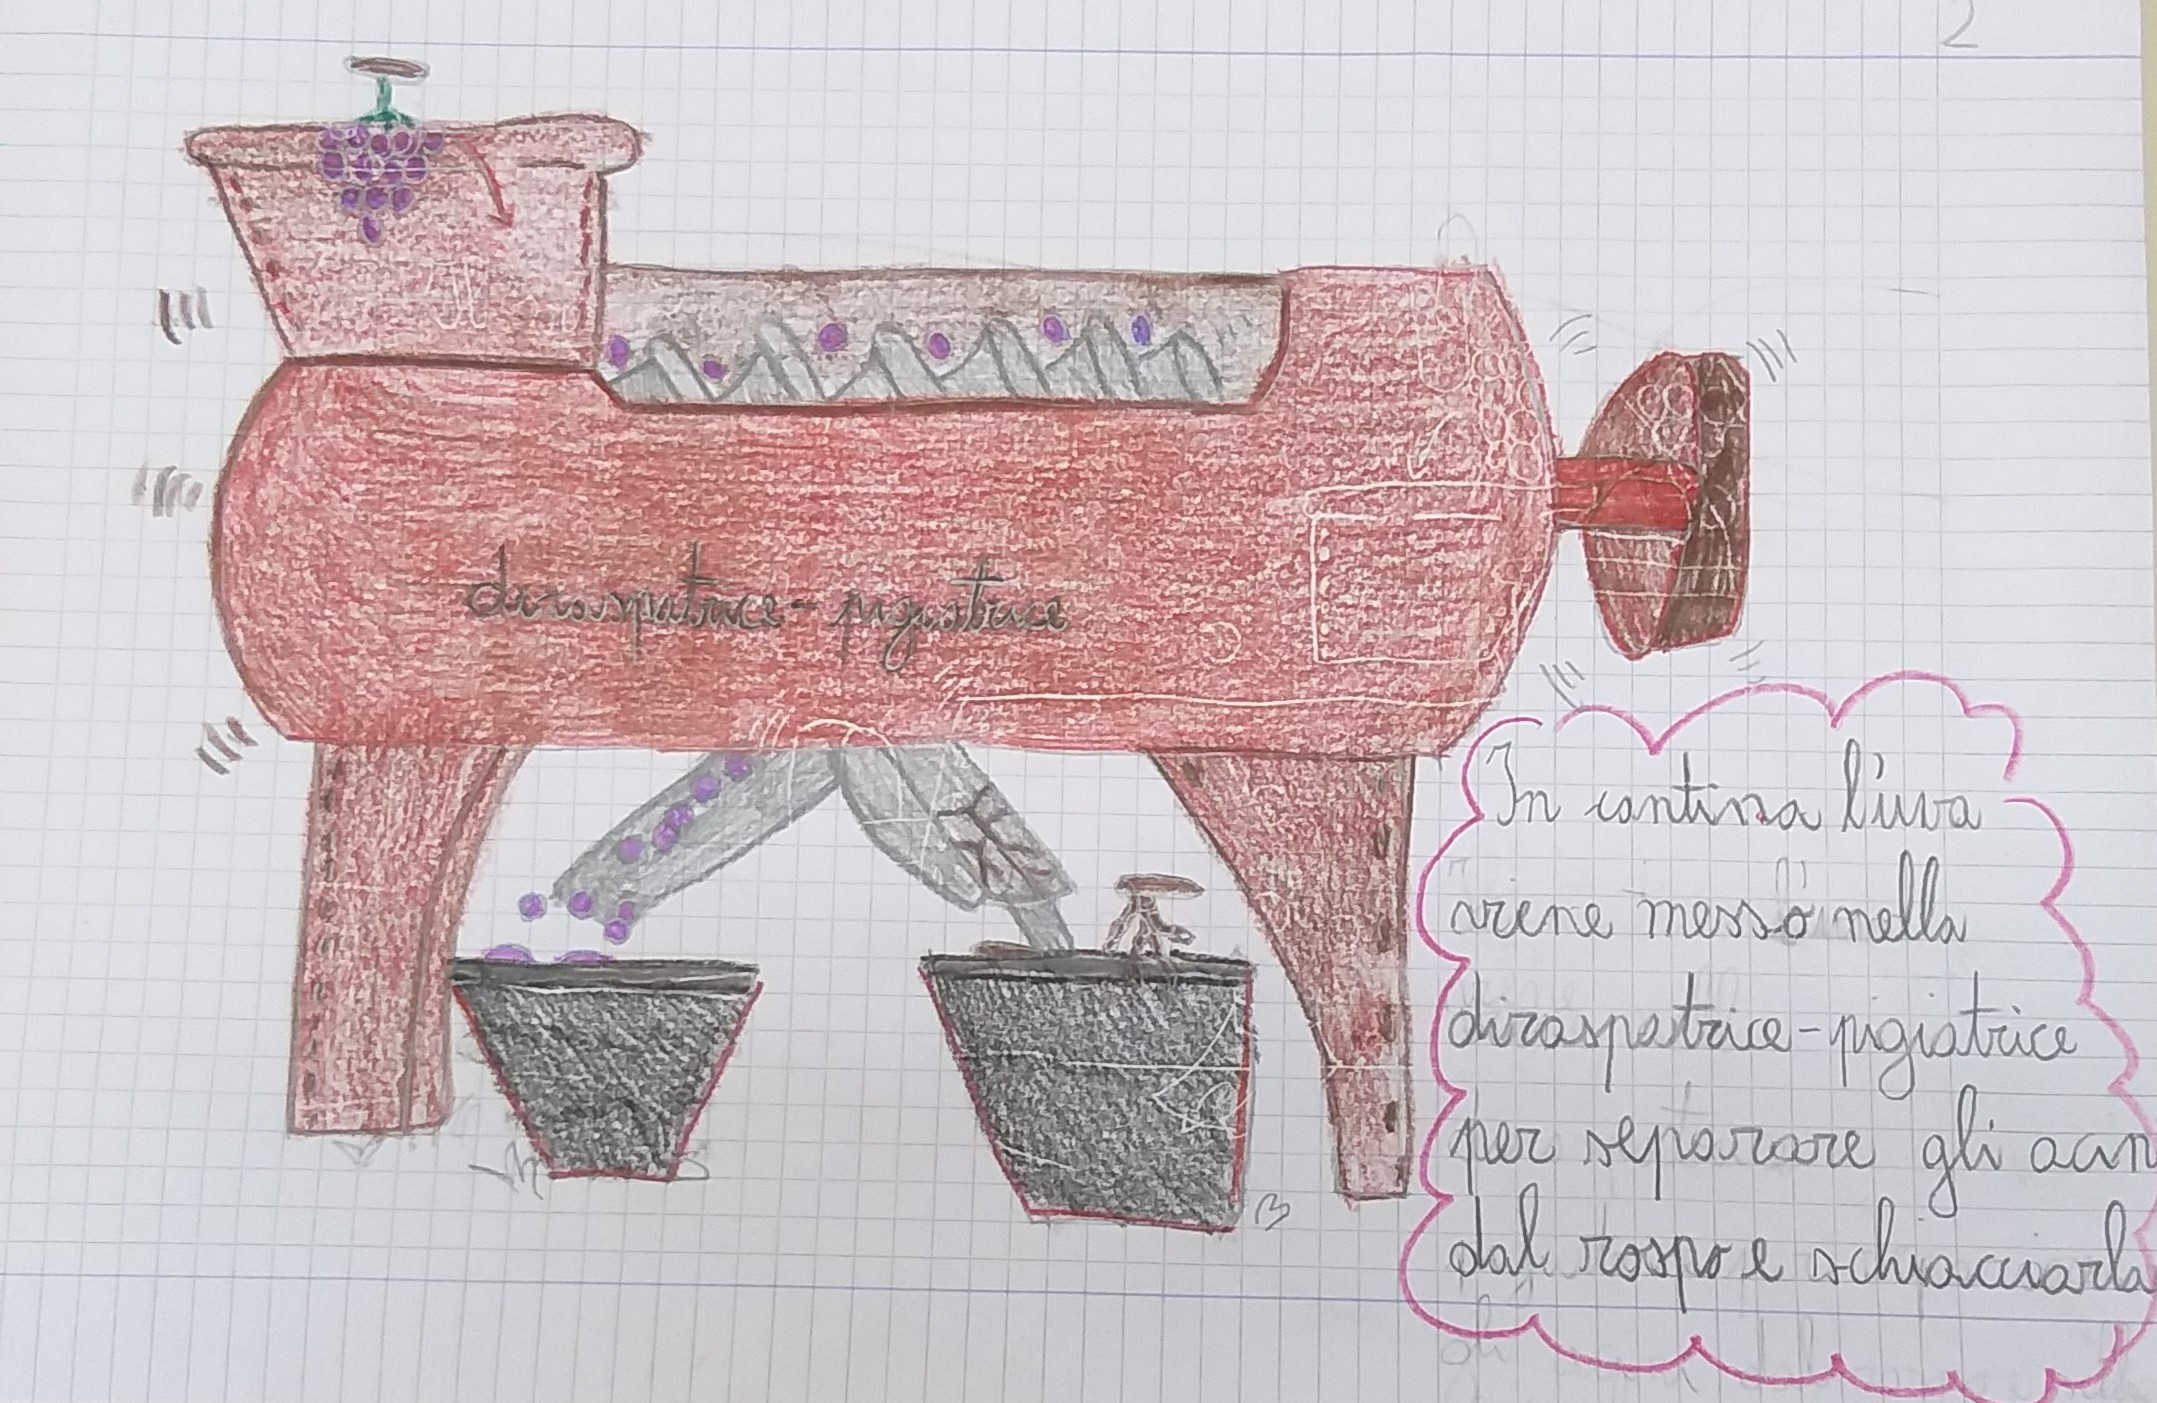 2
diraspatrice-pigiatrice
In cantina l'uva
viene messa nella
diraspatrice-pigiatrice
per separare gli acin
dal raspo e schiacciarla